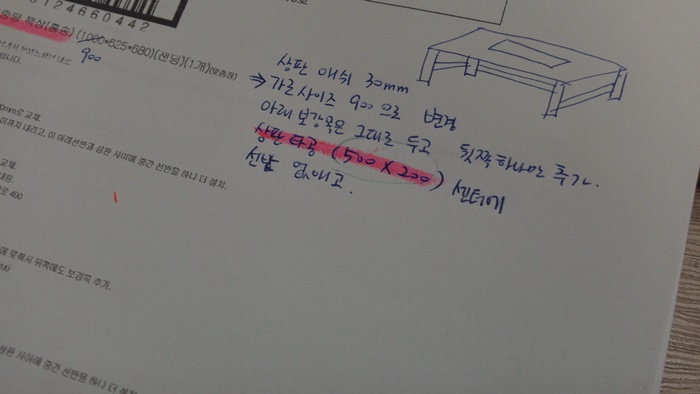 124660442
중형 책상(통상) (1000*625*680)(샌딩)(1개)
900
입니다.
상판 애쉬 30mm
⇒ 가로 사이즈 900 으로 변경
아래 보강목은 그대로 두고 뒷쪽 하나만 추가.
상판 타공 (500 X 200) 센터에
선반 없애고.
0mm로 교체.
이까지 내리고, 미 아래선반과 상판 사이에 중간 선반을 하나 더 설치.
교체.
로 490
에 맞춰서 뒤쪽에도 보강목 추가.
상판 사이에 중간 선반을 하나 더 설치